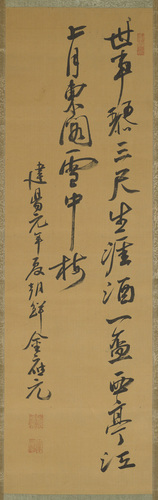 世事琴三尺生涯酒一盃西亭江
上月東閣雪中梅
建陽元年夏朝鮮金府元